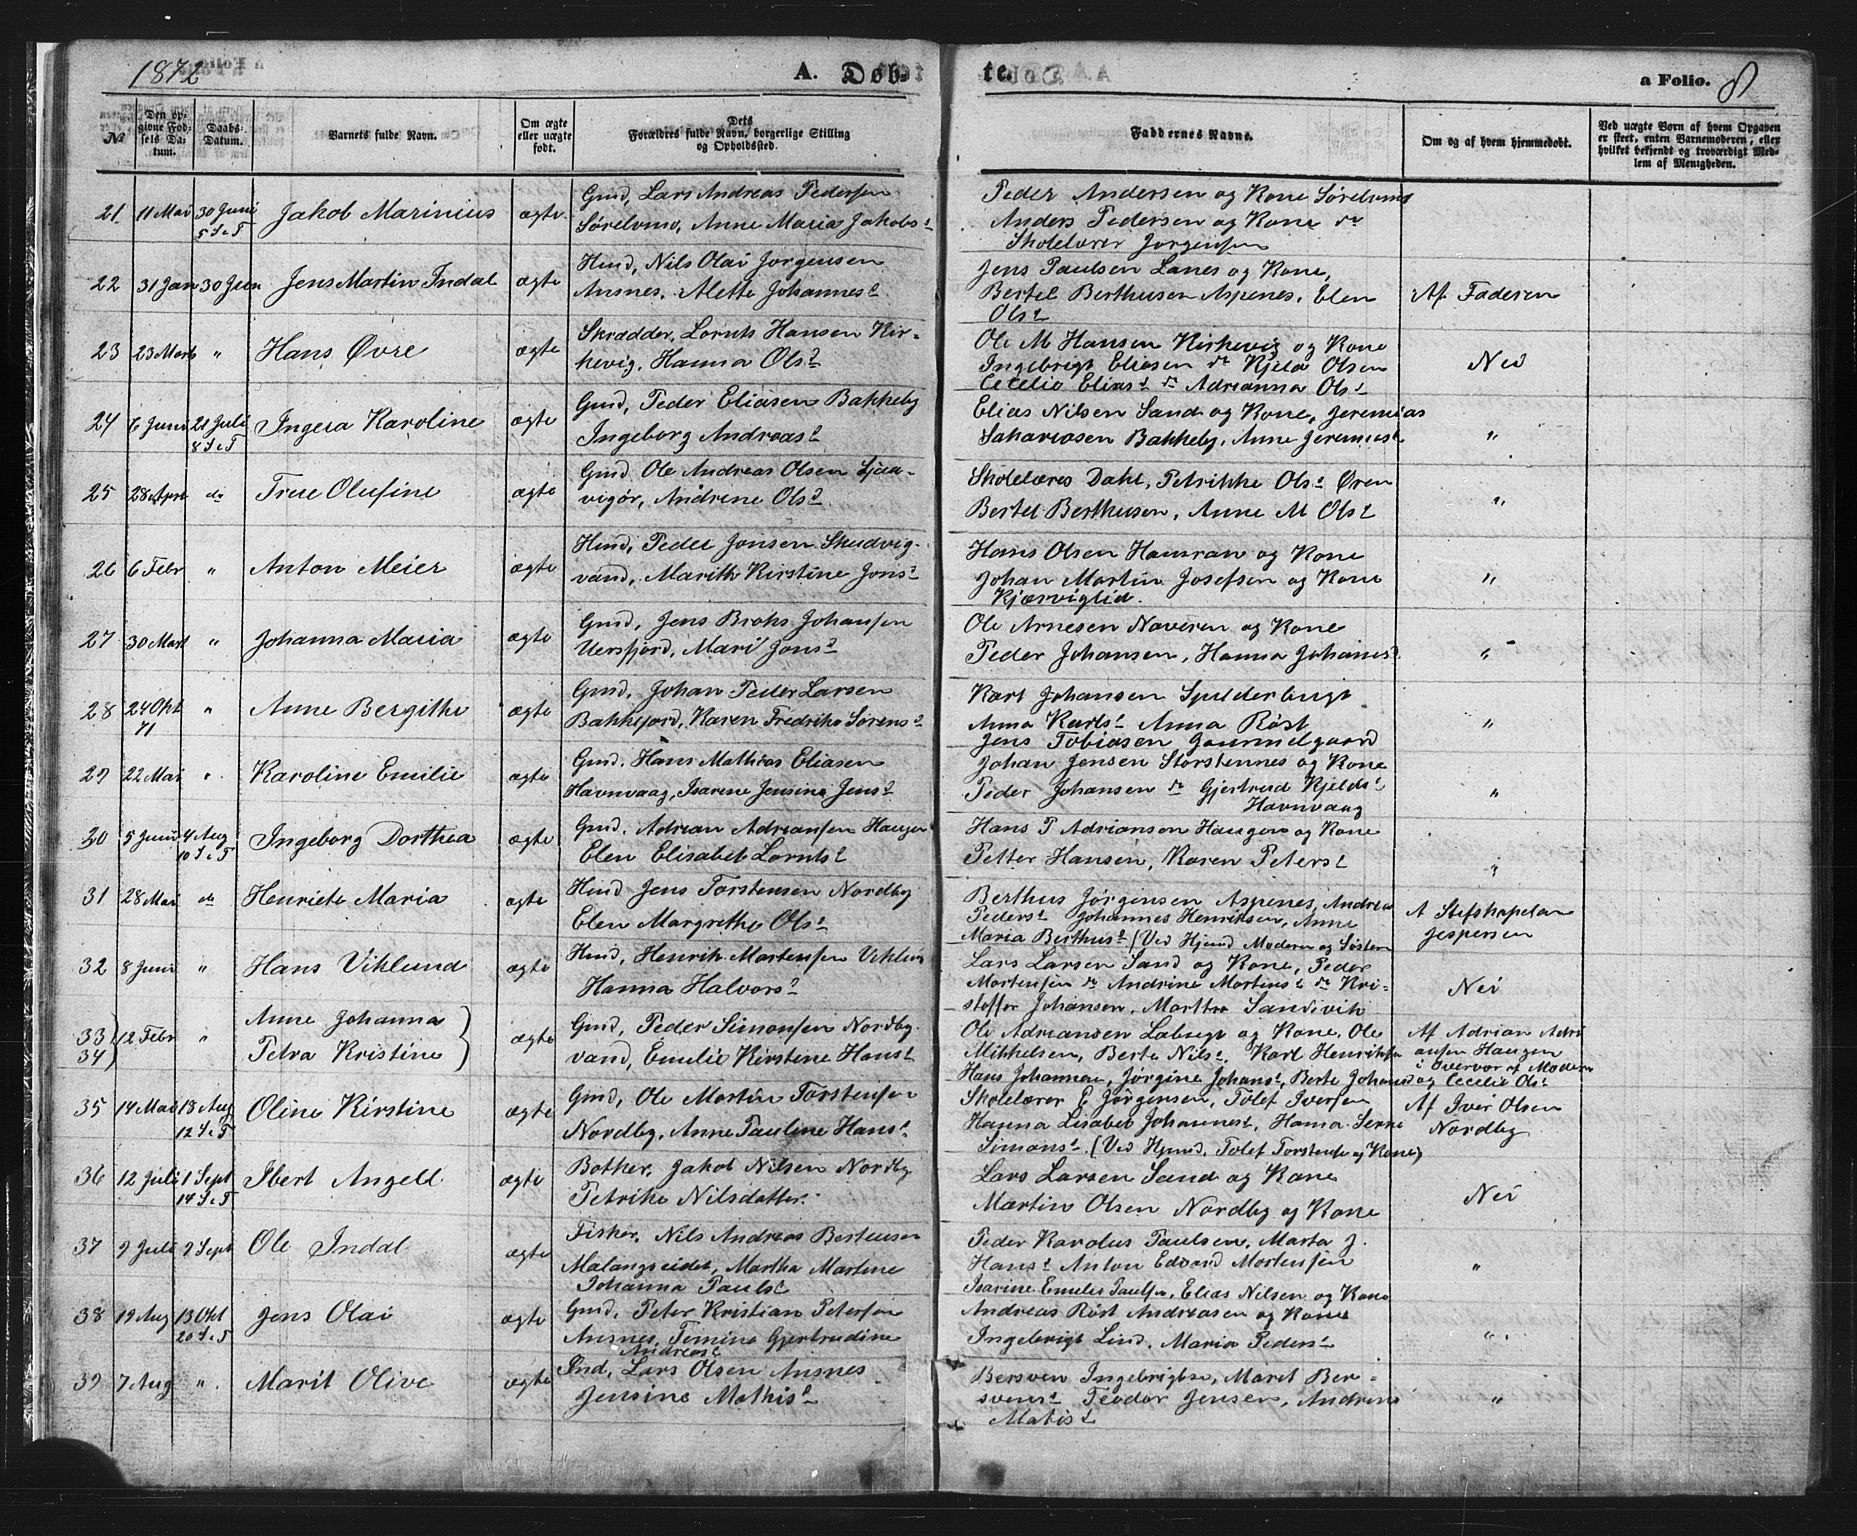 1872 A. Døb- te. a Folio. 8
№
Den op-
givne Fød-
sels Da-
tum.
Daabs-
Datum.
Barnets fulde Navn.
Om ægte
eller uægte
født.
Dets
Forældres fulde Navn, borgerlige Stilling
og Opholdssted.
Faddernes Navne.
Om og af hvem hjemmedøbt.
Ved uægte Børn af hvem Opgaven
er skeet, enten Barnemoderen, eller
hvilket bekjendt og troværdigt Med-
lem af Menigheden.
21 11 Mai 30 Juni Jakob Marinius ægte Gmd, Lars Andreas Pedersen Peder Andersen og Kone Sørelvmo
5 S. e. T Sørelvmo, Anne Maria Jakobsd Anders Pedersen og Kone do
Skolelærer Jørgensen
22 31 Jan 30 Juni Jens Martin Indal ægte Hmd, Nils Olai Jørgensen Jens Paulsen Lanes og Kone,
Ansnes, Alette Johannesd Bertel Berthusen Aspenes, Elen Af Faderen
Olsd
23 23 Mart " Hans Øvre ægte Skrædder, Lornts Hansen Kir- Ole M Hansen Kirkevig og Kone
kevig, Hanna Olsd Ingebrigt Eliasen do Kjela Olsen Nei
Cecelie Eliasd do Adrianna Olsd
24 6 Juni 21 Juli Ingera Karoline ægte Gmd, Peder Eliasen Bakkeby Elias Nilsen Sand og Kone, Jeremias
8 S. e. T Ingeborg Andreasd Sakariasen Bakkeby, Anne Jeremiesd "
25 28 April do Trine Olufine ægte Gmd Ole Andreas Olsen Skolelæres Dahl, Petrikke Olsd Øren
Andrene Olsd Bertel Berthusen, Anne M Olsd "
26 6 Febr " Anton Meier ægte Hmd, Peder Jonsen Skudvig- Hans Olsen og Kone
vand, Marith Kirstine Jonsd Johan Martin Josefsen og Kone "
Kjærviglid.
27 30 Mart " Johanna Maria ægte Gmd, Jens Broks Johansen Ole Arnesen Naveren og Kone
Uersfjord, Mari Jonsd Peder Johansen, Hanna Johansd "
28 24 Okt " Anne Bergithe ægte Gmd, Johan Peder Larsen Karl Johansen Spilderbugt
71 Bakkejord, Karen Fredrike Sørensd Anna Karlsd Anna Røst "
Jens Tobiasen Gammelgaard
29 22 Mai " Karoline Emilie ægte Gmd, Hans Mathias Eliasen Johan Jensen Storstennes og Kone
Havnvaag, Isarene Jensine Jensd Peder Johansen do Gjertrud Kjeldsd "
Havnvaag
30 5 Juni 4 Aug Ingeborg Dorthea ægte Gmd, Adrian Adriansen Haugen Hans P Adriansen Haugen og Kone
10 S. e. T Elen Elisabet Lorntsd Petter Hansen, Karen Petersd "
31 28 Mai do Henriete Maria ægte Hmd Jens Torstensen Nordby Berthus Jørgensen Aspenes, Andrea
Elen Margrethe Olsd Pedersd Johannes Henriksen, Anne A Stifskapelan
Maria Berthusd (Ved Hjemd Moderen og Søsteren Jespersen
32 8 Juni " Hans Viklund ægte Hmd, Henrik Mortensen Viklund Lars Larsen Sand og Kone, Peder
Hanna Halvorsd Mortensen do Andrine Mortensd do Kri- Nei
stoffer Johansen, Marthe Sandivik
33) 12 Febr " Anne Johanna ægte Gmd, Peder Simonsen Nordby- Ole Adriansen Labugt og Kone, Ole Af Adrian Adri
34) Petra Kristine } vand, Emelie Kirstene Hansd Mikkelsen, Berte Nilsd, Karl Henriksen ansen Haugen
Hans Johannesen, Jørgine Johansd, Berte Johansd i Overvær af Moderen og Cecelie Olsd
35 14 Mai 18 Aug Oline Kirstine ægte Gmd, Ole Martin Torstensen Skolelærer E Jørgensen, Tolef Iversen Af Iver Olsen
12 S. e. T Nordby, Anne Pauline Hansd Hanna Lisabet Johannesd, Hanna Serine Nordby
Simonsd (Ved Hjemd, Tolef Torstensen og Kone)
36 12 Juli 1 Sept Ibert Angell ægte Bøtker, Jakob Nilsen Nordby Lars Larsen Sand og Kone
14 S. e. T Petrike Nilsdatter. Martin Olsen Nordby og Kone Nei
37 9 Juli 2 Sept Ole Indal ægte Fisker, Nils Andreas Berteusen Peder Karolus Paulsen, Marta J.
Malangseidet, Martha Martine Hansd Anton Edvard Mortensen "
Johanna Paulsd Isarine Emelie Paulsd, Elias Nilsen og Kone
38 19 Aug 13 Okt Jens Olai ægte Gmd, Peter Kristian Petersen Andreas Røst Andreasen og Kone
20 S. e. T Ansnes, Temina Gjertrudine Ingebrigt Lind, Maria Pedersd "
Andreasd
39 7 Aug " Marit Olive ægte Ind, Lars Olsen Ansnes Bersven Ingebrigtsen, Marit Ber-
Jensine Mathisd svensd Teodor Jensen, Andrine "
Matisd